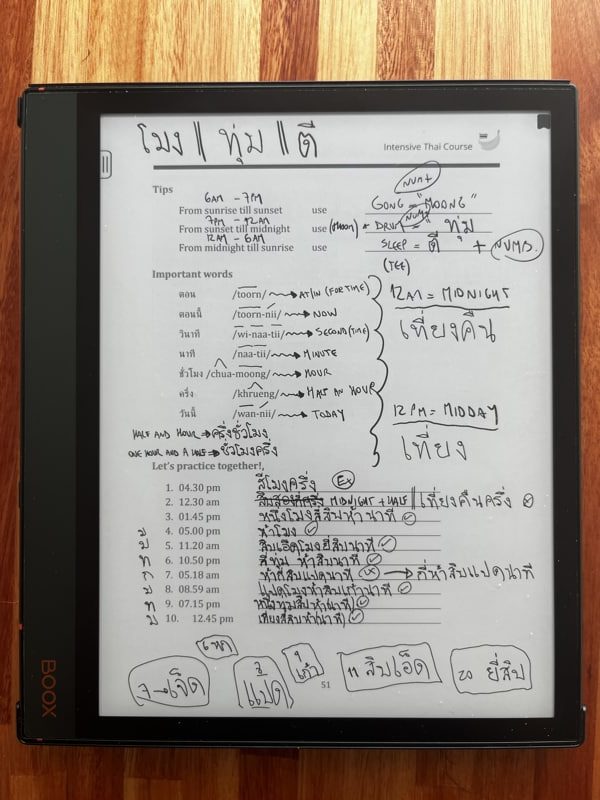 โมง || ทุ่ม || ตี
Intensive Thai Course
Tips
NUM+
6AM - 7PM
From sunrise till sunset use GONG = "MOONG"
7PM - 12AM
NUM+
From sunset till midnight use (Moon) DRUM = ทุ่ม
12AM - 6AM
From midnight till sunrise use SLEEP = ตี + NUMB.
(TEE)
Important words
ตอน /toorn/ → AT/IN (FOR TIME)
ตอนนี้ /toorn-nii/ → NOW
วินาที /wi-naa-tii/ → SECOND (TIME)
นาที /naa-tii/ → MINUTE
ชั่วโมง /chua-moong/ → HOUR
ครึ่ง /khrueng/ → HALF AN HOUR
วันนี้ /wan-nii/ → TODAY
12AM = MIDNIGHT
เที่ยงคืน
12PM = MIDDAY
เที่ยง
HALF AND HOUR → ครึ่งชั่วโมง
ONE HOUR AND A HALF → ชั่วโมงครึ่ง
Let's practice together!,
1. 04.30 pm สี่โมงครึ่ง EX
2. 12.30 am MIDNIGHT + HALF || เที่ยงคืนครึ่ง
3. 01.45 pm หนึ่งโมงสี่สิบห้านาที
4. 05.00 pm ห้าโมง
5. 11.20 am สิบเอ็ดโมงยี่สิบนาที
6. 10.50 pm สี่ทุ่ม ห้าสิบนาที
7. 05.18 am ห้าตีสิบแปดนาที → ตีห้าสิบแปดนาที
8. 08.59 am แปดโมงห้าสิบเก้านาที
9. 07.15 pm หนึ่งทุ่มสิบห้า(นาที)
10. 12.45 pm เที่ยงสี่สิบห้า(นาที)
7 → เจ็ด
แปด
9 เก้า
11 สิบเอ็ด
20 ยี่สิบ
51
BOOX